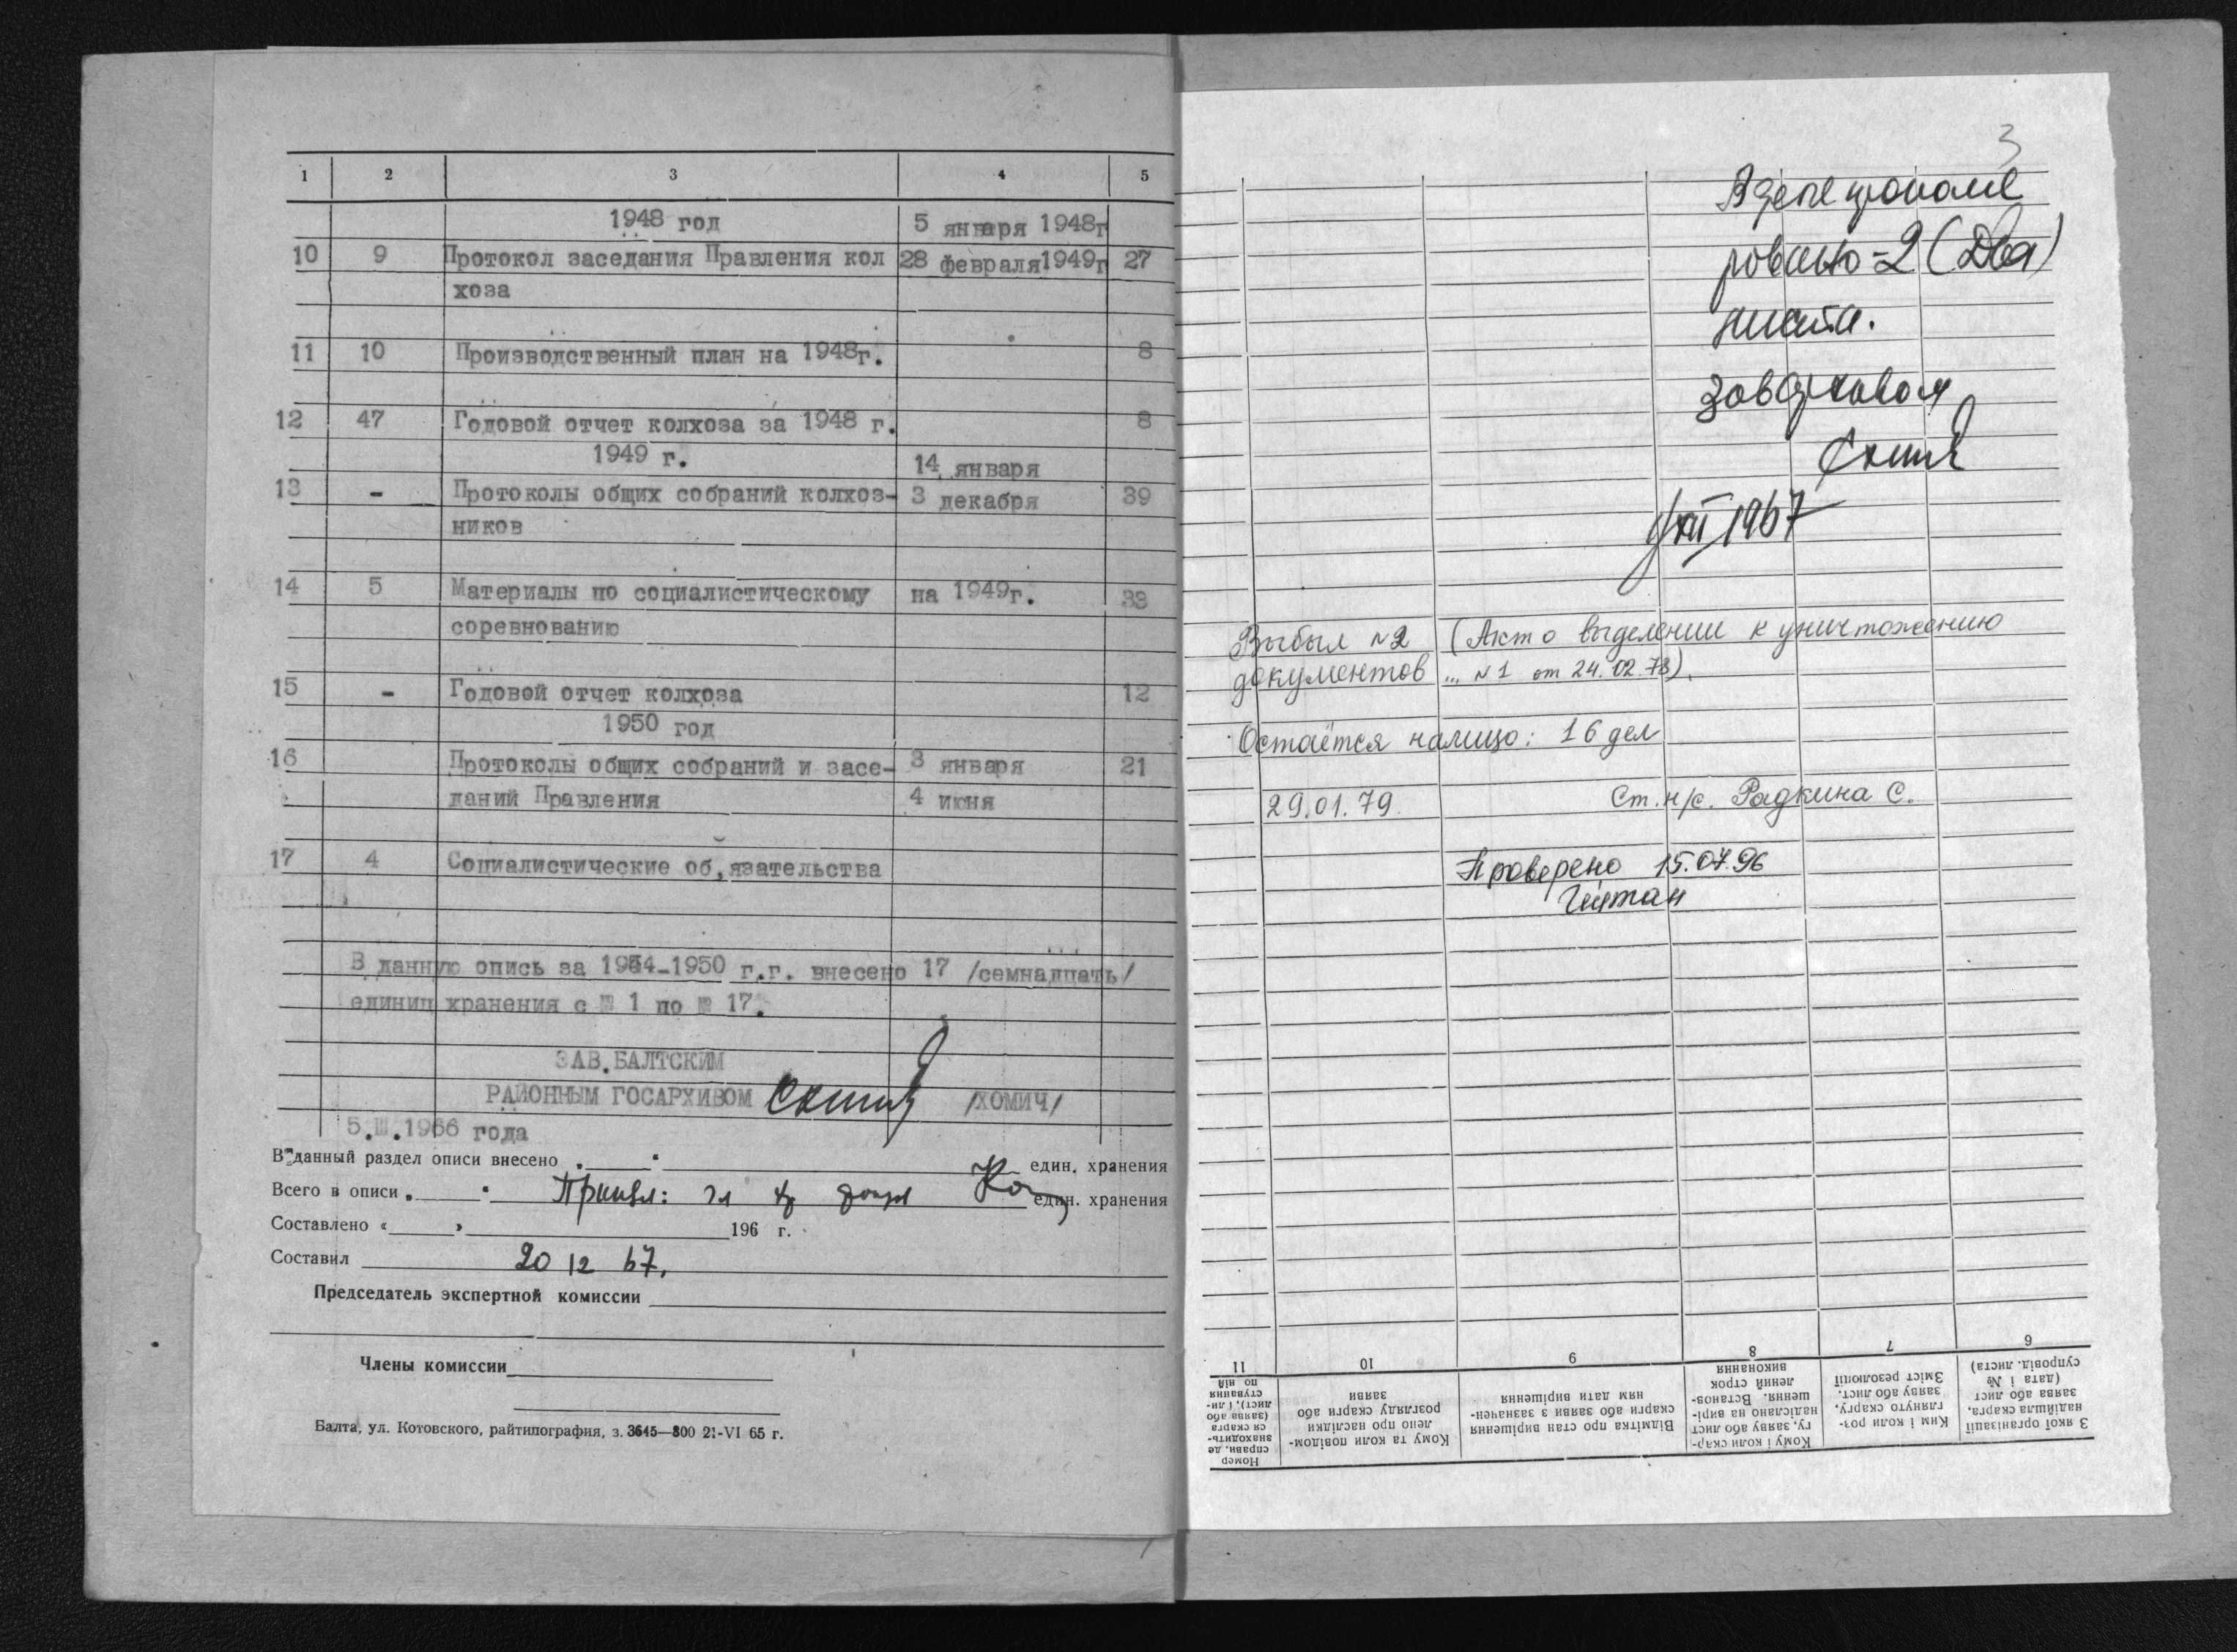 1 2 3 4 5
1948 год 5 января 1948г
10 9 Протокол заседания Правления кол 28 февраля 1949г 27
хоза
11 10 Производственный план на 1948г. 8
12 47 Годовой отчет колхоза за 1948 г. 8
1949 г. 14 января
13 - Протоколы общих собраний колхоз- 3 декабря 39
ников
14 5 Материалы по социалистическому на 1949г. 33
соревнованию
15 - Годовой отчет колхоза 12
1950 год
16 Протоколы общих собраний и засе- 3 января 21
даний Правления 4 июня
17 4 Социалистические об,язательства
В данную опись за 1944-1950 г.г. внесено 17 /семнадцать/
единиц хранения с № 1 по № 17.
ЗАВ.БАЛТСКИМ
РАЙОННЫМ ГОСАРХИВОМ /ХОМИЧ/
5.Ш.1966 года
В данный раздел описи внесено „ “ един. хранения
Всего в описи „ “ един. хранения
Составлено « » 196 г.
Составил 20 12 67.
Председатель экспертной комиссии
Члены комиссии
Балта, ул. Котовского, райтипография, з. 3645—800 21-VI 65 г.
3
В деле пронуме
ровано=2 (Два)
листа.
Завархивом
XII 1967
Выбыл №2 (Акт о выделении к уничтожению
документов ... №1 от 24.02.78).
Остаётся налицо: 16 дел
29.01.79. Ст. н/с. Радкина С.
Проверено 15.07.96
11 10 9 8 7 6
Номер справи, де знаходиться скарга (заява або лист), і листування по ній
Кому та коли повідомлено про наслідки розгляду скарги або заяви
Відмітка про стан вирішення скарги або заяви з зазначенням дати вирішення
Кому і коли скаргу, заяву або лист надіслано на вирішення. Встановлений строк виконання
Ким і коли розглянуто скаргу, заяву або лист. Зміст резолюції
З якої організації надійшла скарга, заява або лист (дата і № супровід. листа)